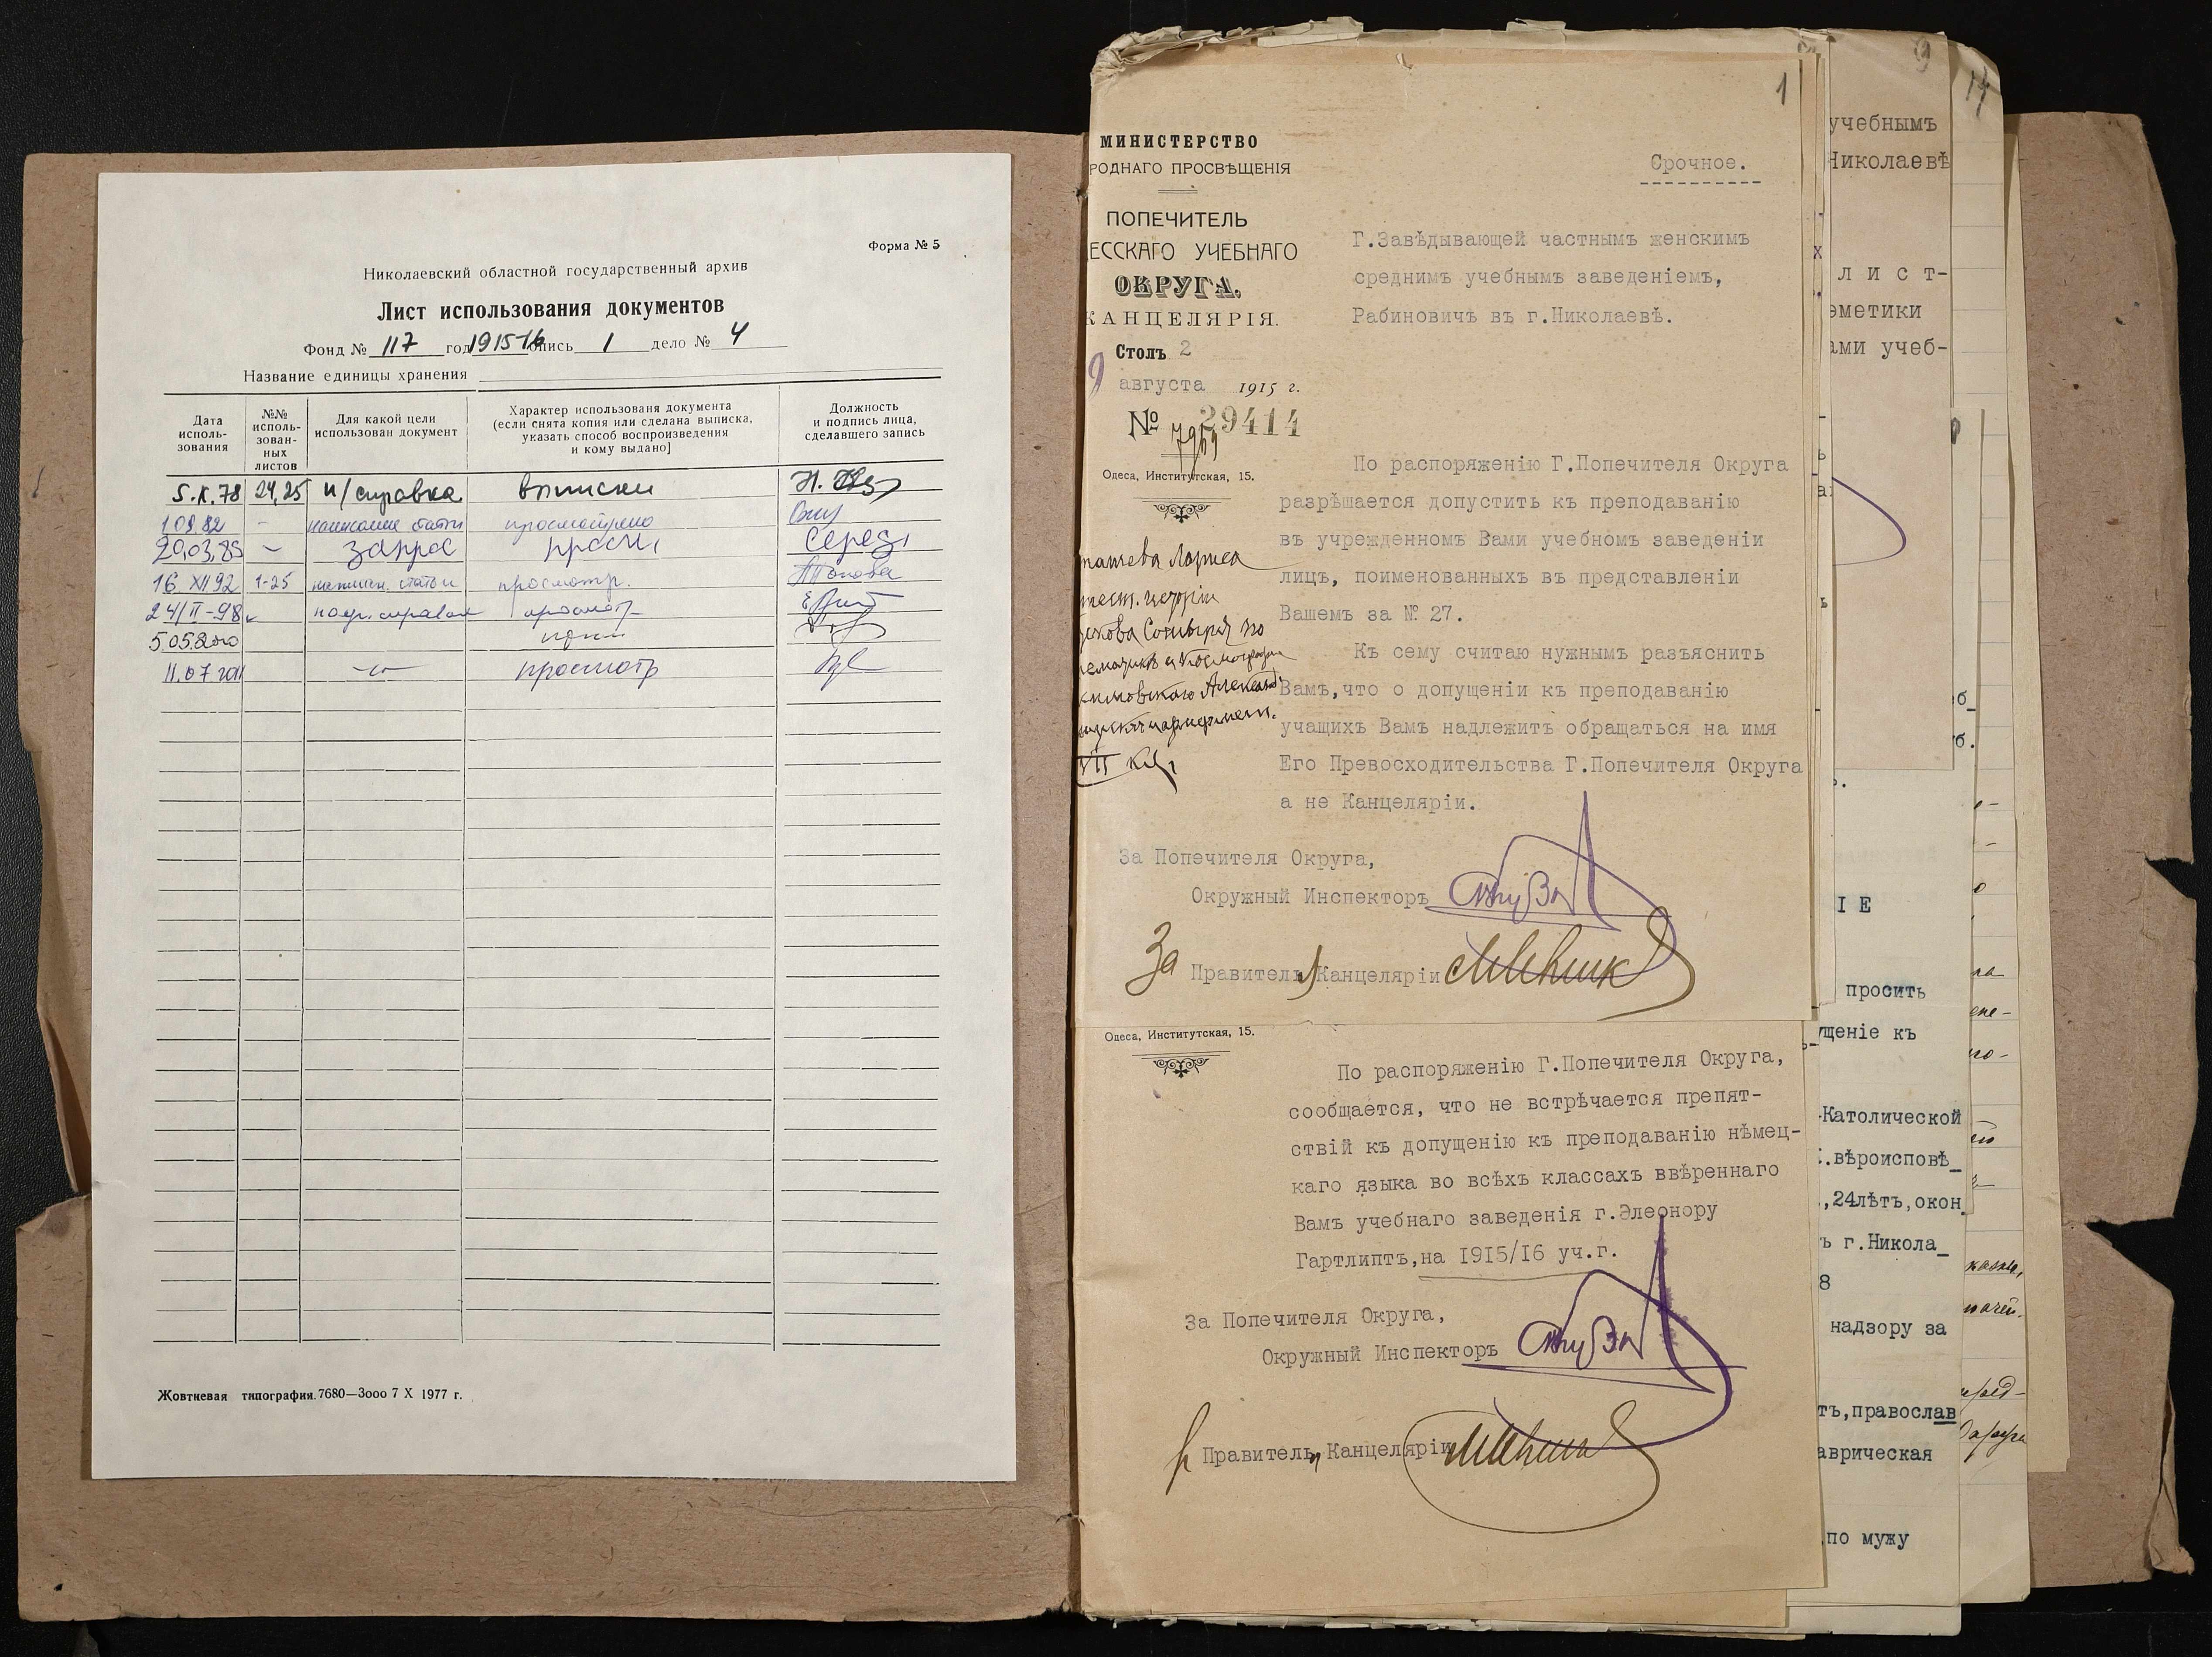 Форма № 5
Николаевский областной государственный архив
Лист использования документов
Фонд № 117 год 1915-16 опись 1 дело № 4
Название единицы хранения
Дата исполь-зования
№№ исполь-зован-ных листов
Для какой цели использован документ
Характер использованя документа (если снята копия или сделана выписка, указать способ воспроизведения и кому выдано]
Должность и подпись лица, сделавшего запись
5.X.78 24,25 н/справка выписки
1.09.82 - написание статьи просмотрено
20.03.85 - запрос просм,
16 XII 92 1-25 написан. статьи просмотр. Попова
24/II-98 просмотр
5.05.2000
11.07 2011 -"- просмотр
Жовтневая типография. 7680—3000 7 X 1977 г.
1
МИНИСТЕРСТВО
РОДНАГО ПРОСВѢЩЕНІЯ
ПОПЕЧИТЕЛЬ
ДЕССКАГО УЧЕБНАГО
ОКРУГА.
КАНЦЕЛЯРІЯ.
Столъ 2
9 августа 1915 г.
№ 29414
Одеса, Институтская, 15.
Срочное.
Г.Завѣдывающей частнымъ женскимъ
среднимъ учебнымъ заведеніемъ,
Рабиновичъ въ г.Николаевѣ.
По распоряженію Г.Попечителя Округа
разрѣшается допустить къ преподаванію
въ учрежденномъ Вами учебномъ заведеніи
лицъ, поименованныхъ въ представленіи
Вашемъ за № 27.
Къ сему считаю нужнымъ разъяснить
Вамъ,что о допущеніи къ преподаванію
учащихъ Вамъ надлежитъ обращаться на имя
Его Превосходительства Г.Попечителя Округа
а не Канцеляріи.
Лариса
VII кл.
За Попечителя Округа,
Окружный Инспекторъ
За Правителя Канцеляріи
Одеса, Институтская, 15.
По распоряженію Г.Попечителя Округа,
сообщается, что не встрѣчается препят-
ствій къ допущенію къ преподаванію нѣмец-
каго языка во всѣхъ классахъ ввѣреннаго
Вамъ учебнаго заведенія г.Элеонору
Гартлиптъ,на 1915/16 уч.г.
За Попечителя Округа,
Окружный Инспекторъ
Правитель Канцеляріи
9
14
учебнымъ
Николаевѣ
л и с т-
ометики
ами учеб-
б_
б.
І Е
просить
ущеніе къ
-Католической
.вѣроисповѣ_
,24лѣтъ,окон_
ъ г.Никола_
8
надзору за
тъ,православ
аврическая
по мужу